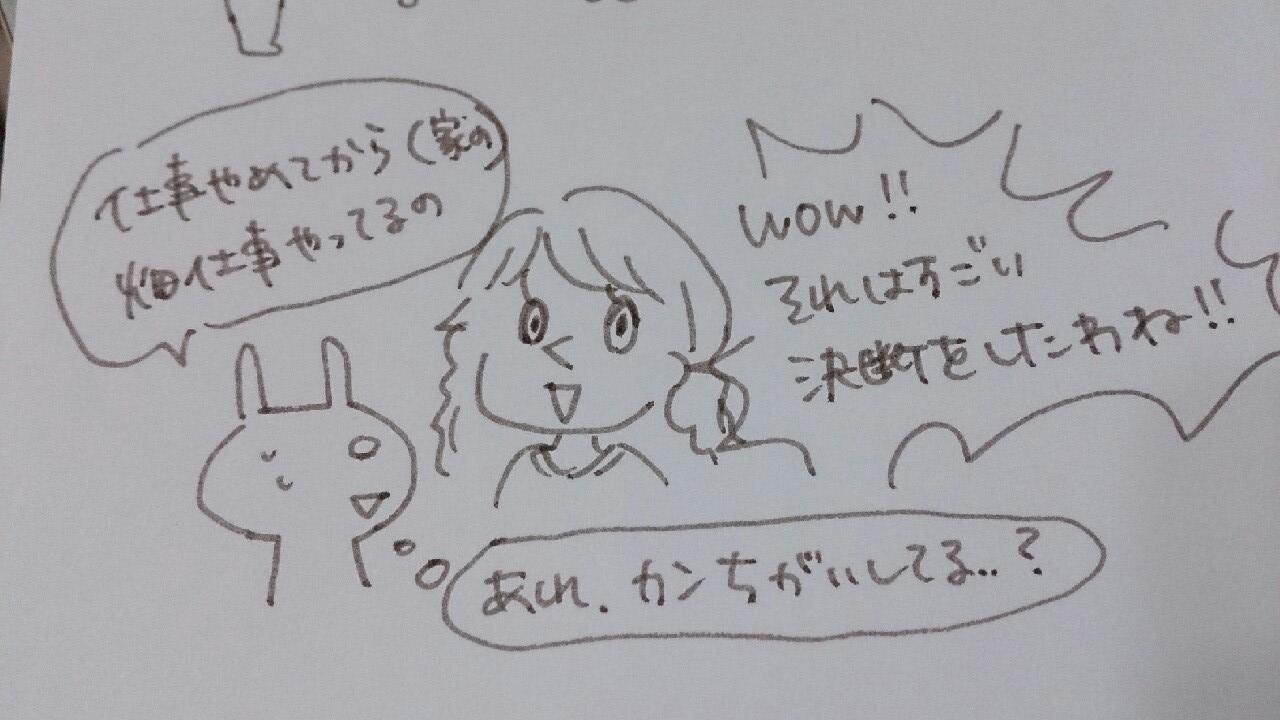 仕事やめてから(家の)
畑仕事やってるの
wow!!
それはすごい
決断をしたわね!!
あれ、カンちがいしてる..?